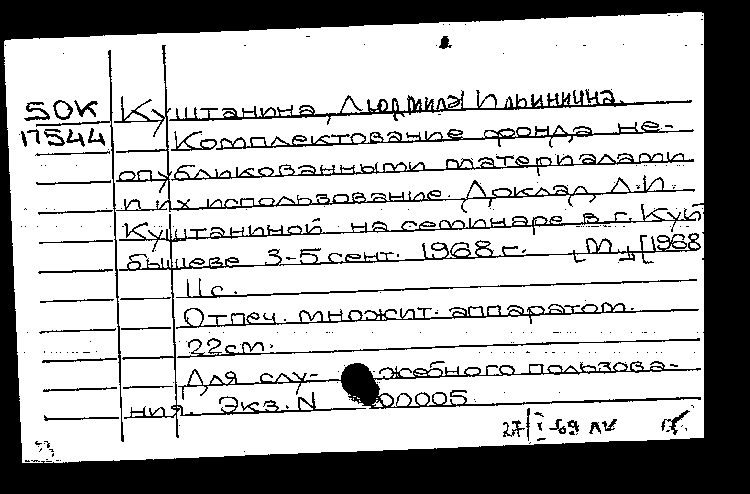 50К Куштанина, Людмила Ильинична.
17544 Комплектование фонда не-
опубликованными материалами
и их использование. Доклад Л.И.
Куштаниной на семинаре в г. Куй
бышеве 3-5 сент. 1968 г. [М.] [1968
11 с.
Отпеч. множит. аппаратом.
22 см.
Для слу- жебного пользова-
ния. Экз. N 00005
27/I-69